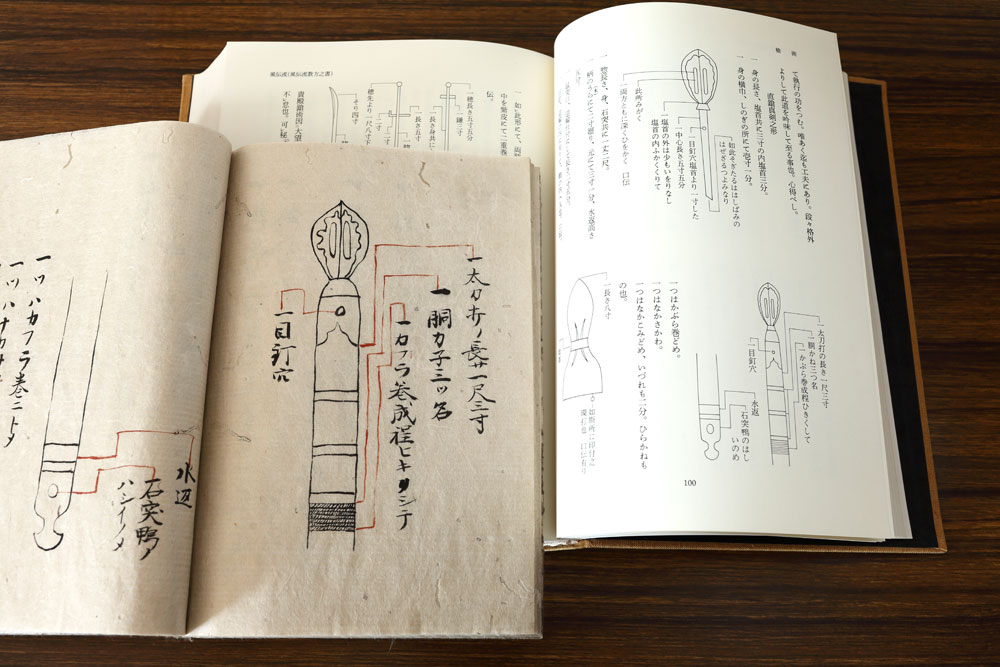 槍術
て執行の功をつむ。唯あく迄も工夫にあり。段々格外
よりして此道を吟味して至る事也。心得べし。
直鎗真剣之形
一 身の長さ、塩首共に三寸の内塩首三分。
一 身の横巾、しのぎの所にて壱寸一分。
如此そぎたるははしばみの
はぜざるつよみなり
一目釘穴塩首より一寸した
一中心長さ五寸五分
一塩首の外は少もいをりなし
一塩首の内ふかくくりて
一両方ともに深くひをかく 口伝
此所みがく
一 惣長さ、身、石突共に一丈二尺。
一太刀打の長さ一尺三寸
一胴かね三つ名
一かぶら巻成程ひきくして
一目釘穴
水返
石突鴨のはし
いのめ
一つはかぶら巻どめ。
一つはなかさかわ。
一つはなかこみどめ、いづれも二分。ひらかねも
の也。
一長さ八寸
100
風伝流(風伝流数方之書)
一 如此形にて、両
中を紫皮にて二重巻
伝。
一穂長さ五寸五分
一鎌二寸
一長さ五寸
一長さ身共に
一穂先より一尺八寸
一そり四寸
一太刀打ノ長サ一尺三寸
一胴カ子三ツ名
一カフラ巻成程ヒキクシテ
一目釘穴
水返
石突鴨ノ
ハシイノメ
一ツハカフラ巻ニトメ